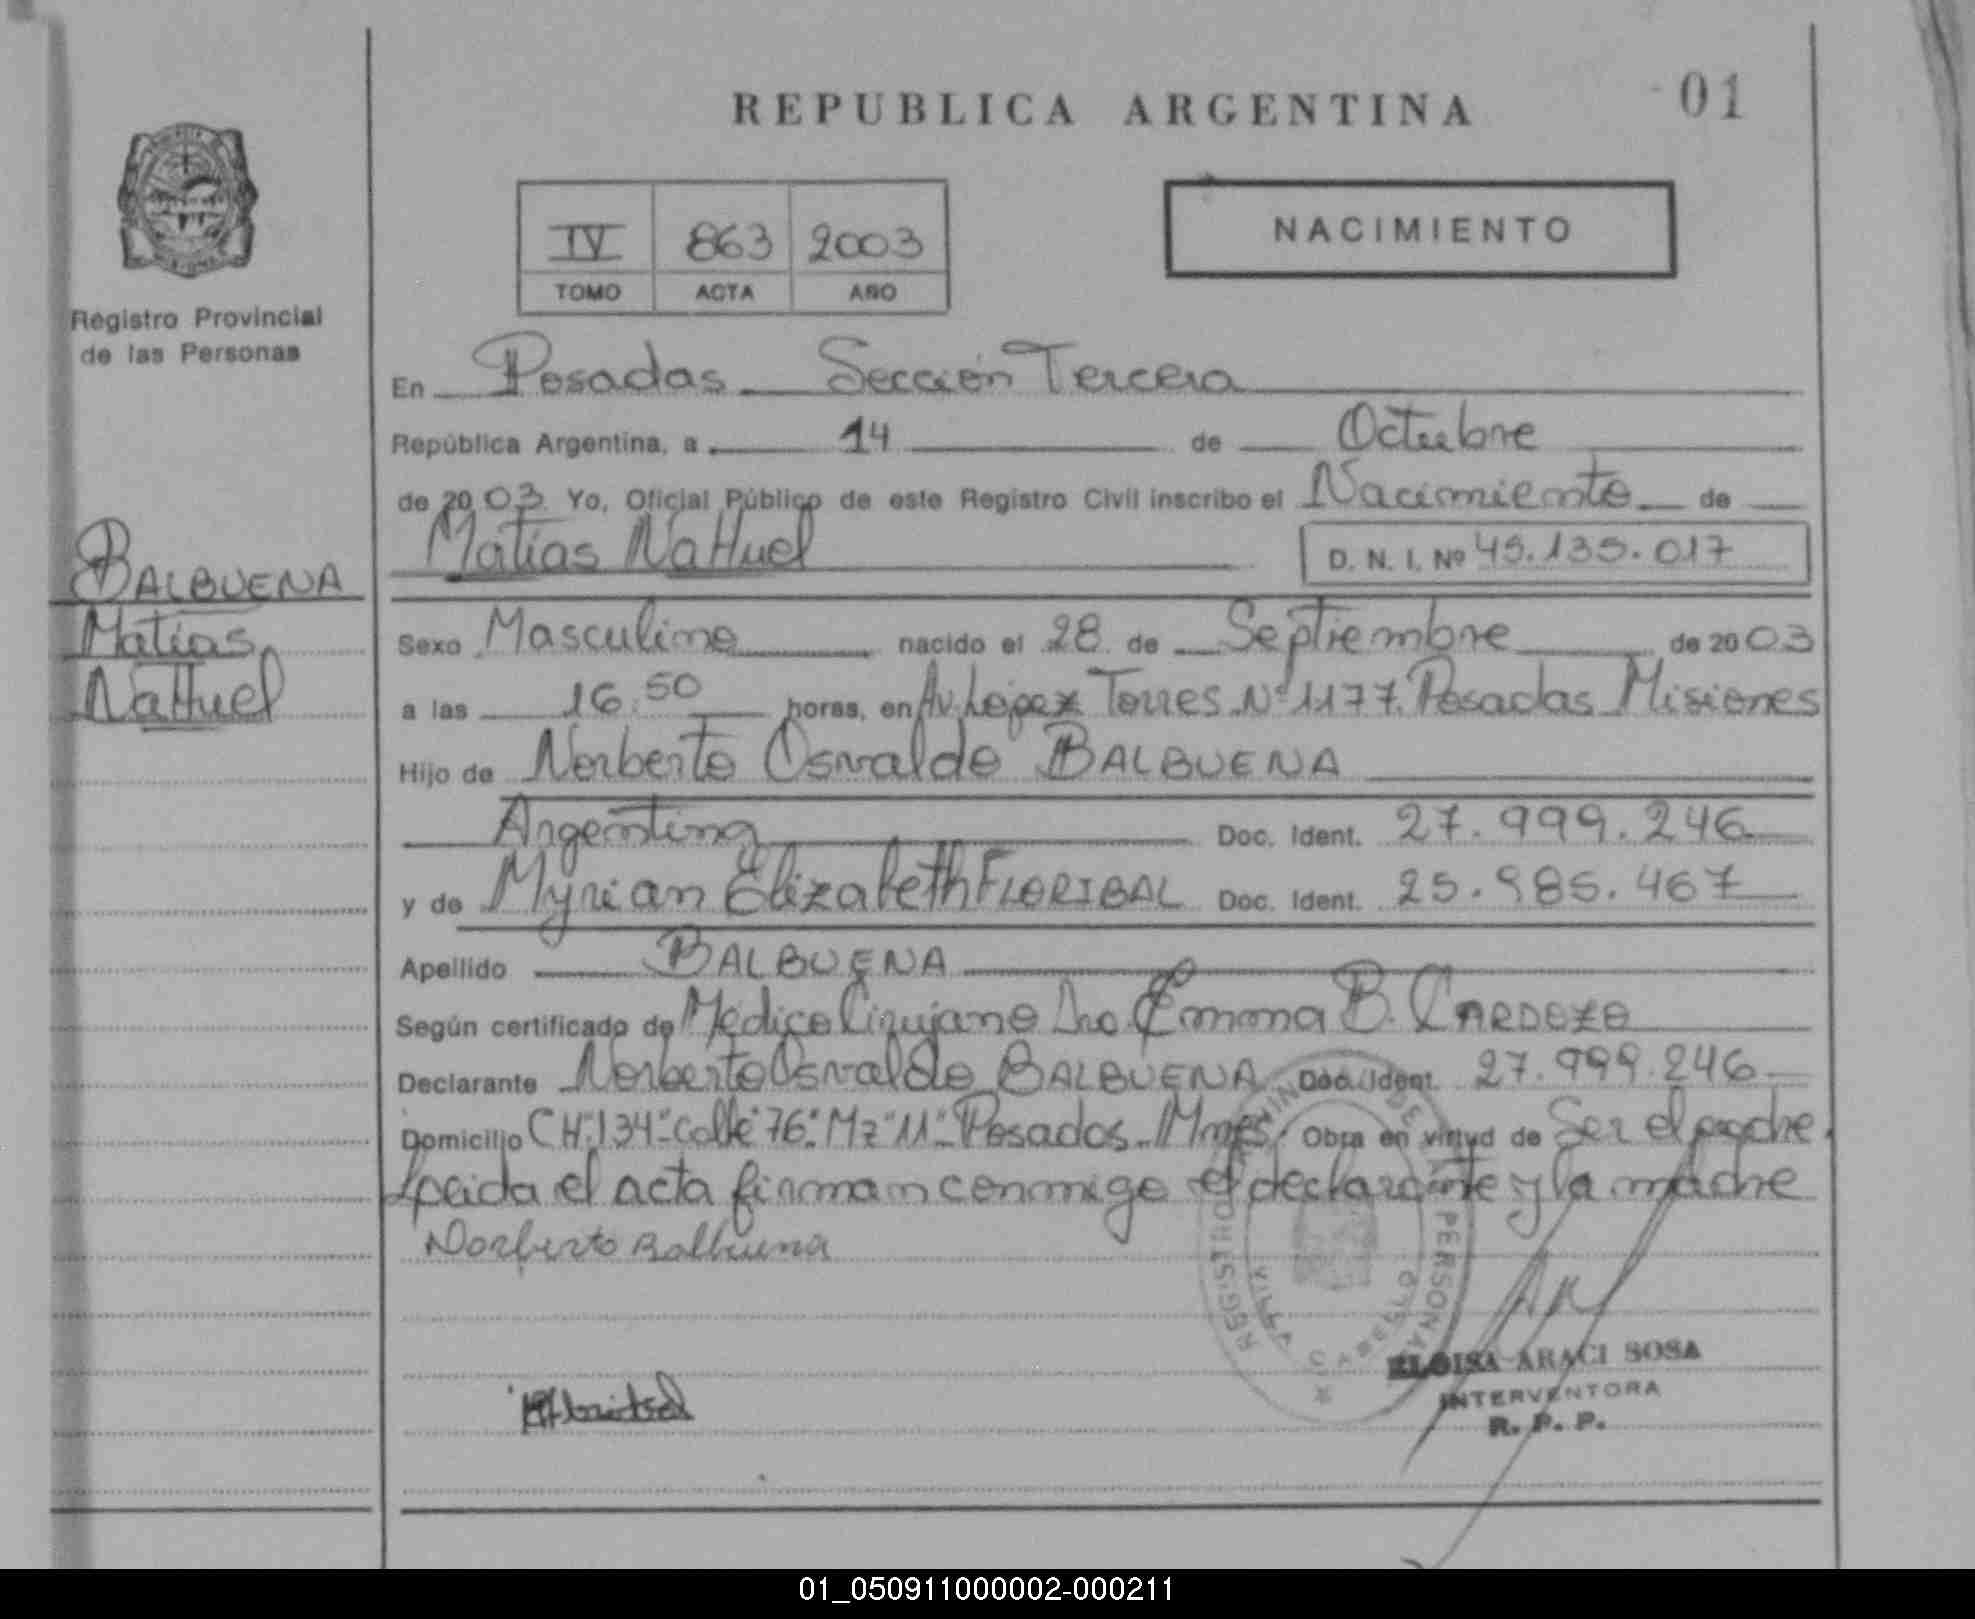 REPUBLICA ARGENTINA
01
IV 863 2003
TOMO ACTA AÑO
NACIMIENTO
Registro Provincial
de las Personas
En Posadas Sección Tercera
República Argentina, a 14 de Octubre
de 2003 Yo, Oficial Público de este Registro Civil inscribo el Nacimiento de
Matías NaHuel
D. N. I. Nº 45.135.017
BALBUENA
Matías
NaHuel
Sexo Masculino nacido el 28 de Septiembre de 2003
a las 16:50 horas, en Av. López Torres Nº 1177. Posadas Misiones
Hijo de Norberto Osvaldo BALBUENA
Argentina Doc. Ident. 27.999.246
y de Myrian Elizabeth FLORIBAL Doc. Ident. 25.985.467
Apellido BALBUENA
Según certificado de Médico Cirujano Dra. Emma B. CARDOZO
Declarante Norberto Osvaldo BALBUENA Doc. Ident. 27.999.246
Domicilio CH"134" calle "76" Mz "11" Posadas Mnes. Obra en virtud de Ser el padre.
Leida el acta firman conmigo el declarante y la madre
Norberto Balbuena
REGISTRO PROVINCIAL DE LAS PERSONAS
VILLA CABELLO
ELOISA ARACI SOSA
INTERVENTORA
R. P. P.
01_050911000002-000211